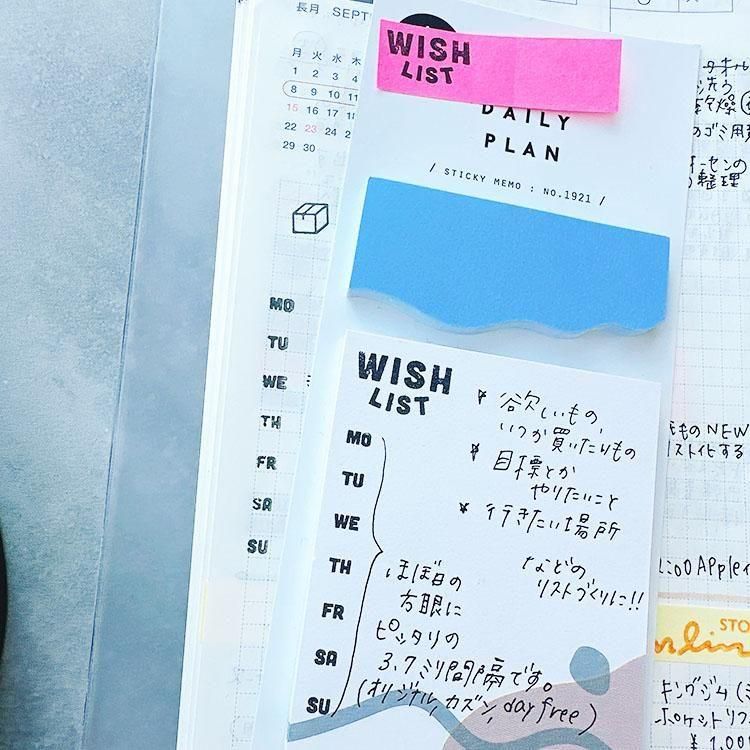 長月 SEPT
月 火 水 木
1 2 3 4
8 9 10 11
15 16 17
22 23 24
29 30
MO
TU
WE
TH
FR
SA
SU
WISH
LIST
DAILY
PLAN
/ STICKY MEMO : NO.1921 /
WISH
LIST
MO
TU
WE
TH
FR
SA
SU
* 欲しいもの、
いつか買いたいもの
* 目標とか
やりたいこと
* 行きたい場所
などの
リストづくりに!!
ほぼ日の
方眼に
ピッタリの
3.7ミリ間隔です。
(オリジナル,カズン,day free)
洗う
のゴミ用
の整理
ものNEW
リスト化する
Apple
STO
キングジム(
ポケットリフ